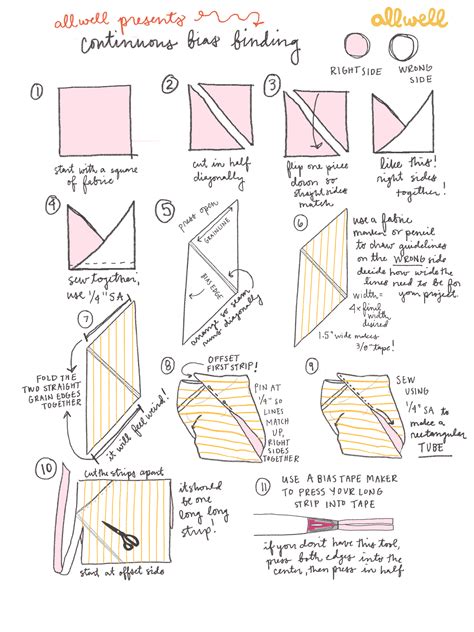 allwell presents
allwell
continuous bias binding
RIGHT SIDE
WRONG
SIDE
1
start with a square
of fabric
2
cut in half
diagonally
3
flip one piece
down so
straight sides
match
like this!
right sides
together!
4
sew together,
use 1/4" SA
5
press open
GRAINLINE
BIAS EDGE
arrange so seam
runs diagonally
6
use a fabric
marker or pencil
to draw guidelines
on the WRONG side
decide how wide the
lines need to be for
your project.
width =
4x final
width
desired
1.5" wide makes
3/8" tape!
7
FOLD THE
TWO STRAIGHT
GRAIN EDGES
TOGETHER
it will feel weird!
8
OFFSET
FIRST STRIP!
PIN AT
1/4" SO
LINES
MATCH
UP,
RIGHT
SIDES
TOGETHER
9
SEW
USING
1/4" SA TO
make a
rectangular
TUBE
10
cut the strips apart
it should
be one
long long
strip!
start at offset side
11
USE A BIAS TAPE MAKER
TO PRESS YOUR LONG
STRIP INTO TAPE
if you don't have this tool,
press both edges into the
center, then press in half